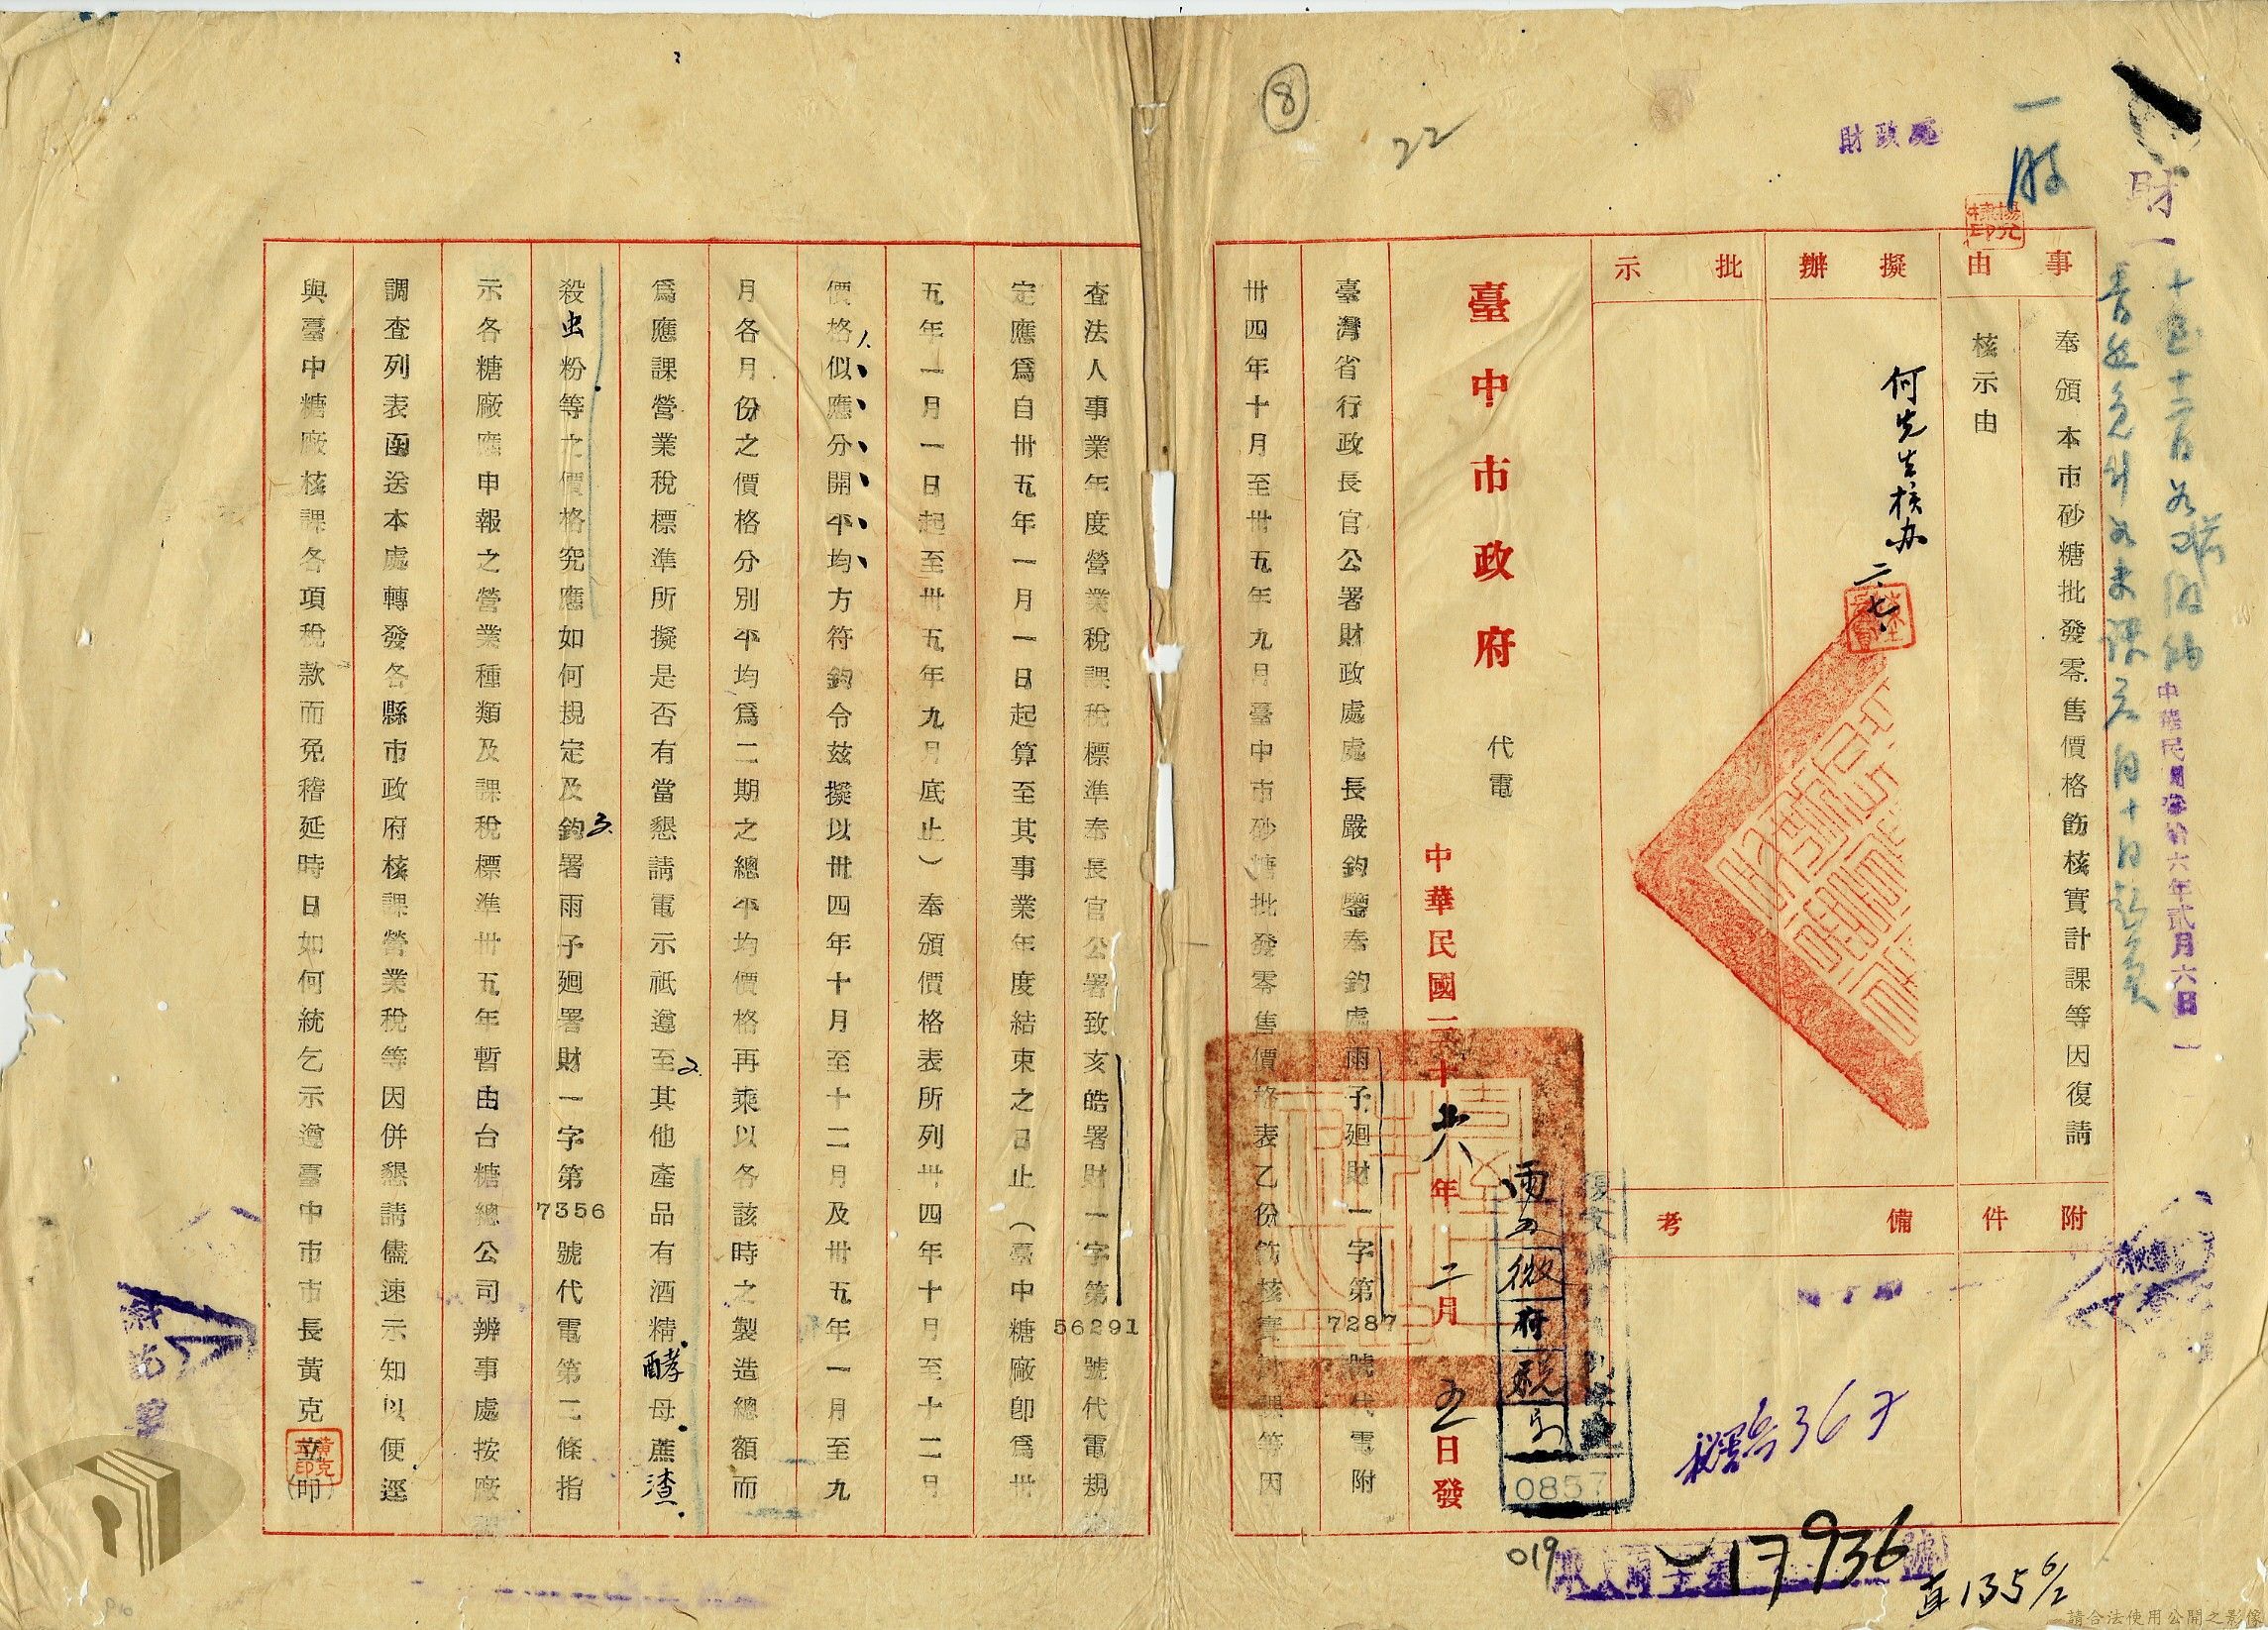 財政處
一股
財
8
22
事由
奉頒本市砂糖批發零售價格飭核實計課等因復請
核示由
擬辦
何先生核办 二.七.
批示
附件
備考
中華民國卅拾六年貳月六日
臺中市政府 代電
中華民國三十六年二月五日發
府
0857
臺灣省行政長官公署財政處處長嚴鈞鑒奉鈞處雨子廻財一字第7287號代電附
卅四年十月至卅五年九月臺中市砂糖批發零售價格表乙份飭核實計課等因
查法人事業年度營業稅課稅標準奉長官公署致亥皓署財一字第56291號代電規
定應爲自卅五年一月一日起算至其事業年度結束之日止（臺中糖廠卽爲卅
五年一月一日起至卅五年九月底止）奉頒價格表所列卅四年十月至十二月
價格似應分開平均方符鈞令茲擬以卅四年十月至十二月及卅五年一月至九
月各月份之價格分別平均爲二期之總平均價格再乘以各該時之製造總額而
爲應課營業稅標準所擬是否有當懇請電示祗遵至其他產品有酒精酵母蔗渣
殺虫粉等之價格究應如何規定及鈞署雨子廻署財一字第7356號代電第二條指
示各糖廠應申報之營業種類及課稅標準卅五年暫由台糖總公司辦事處按廠
調查列表函送本處轉發各縣市政府核課營業稅等因併懇請儘速示知以便逕
與臺中糖廠核課各項稅款而免稽延時日如何統乞示遵臺中市市長黃克立（印）
黃克立印
019
17936
135 6/2
請合法使用公開之影像